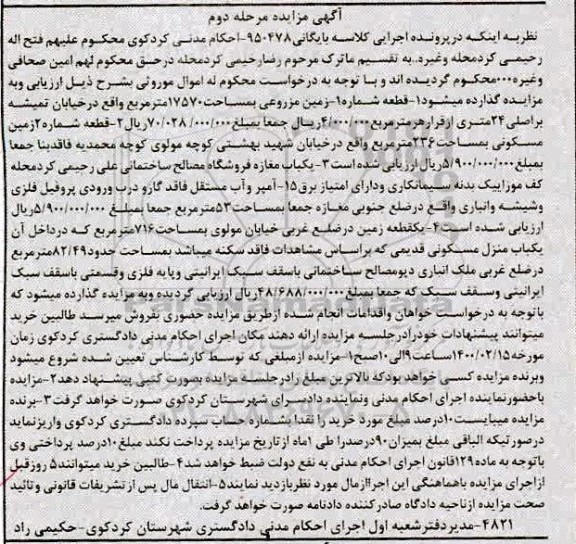 آگهی مزایده مرحله دوم
نظریه اینکه درپرونده اجرایی کلاسه بایگانی۹۵۰۴۷۸-احکام مدنی کردکوی محکوم علیهم فتح اله
رحیمی کردمحله وغیره..به تقسیم ماترک مرحوم رضارحیمی کردمحله درحق محکوم لهم امین صحافی
وغیره۰۰۰محکوم گردیده اند و با توجه به درخواست محکوم له اموال موروثی بشرح ذیل ارزیابی وبه
مزایده گذارده میشود۱-قطعه شماره۱-زمین مزروعی بمساحت۱۷۵۷۰مترمربع واقع درخیابان تمیشه
براصلی۲۴متری ازقرارهرمترمربع۴/۰۰۰/۰۰۰ریال جمعا بمبلغ۷۰/۰۲۸/۰۰۰/۰۰۰ریال۲-قطعه شماره۲زمین
مسکونی بمساحت۲۳۶مترمربع واقع درخیابان شهید بهشتی کوچه مولوی کوچه محمدیه فاقدبنا جمعا
بمبلغ۵/۹۰۰/۰۰۰/۰۰۰ریال ارزیابی شده است۳-یکباب مغازه فروشگاه مصالح ساختمانی علی رحیمی کردمحله
کف موزاییک بدنه سیمانکاری ودارای امتیاز برق۱۵-آمپر وآب مستقل فاقد گازو درب ورودی پروفیل فلزی
وشیشه وانباری واقع درضلع جنوبی مغازه جمعا بمساحت۵۳مترمربع جمعا بمبلغ ۵/۹۰۰/۰۰۰/۰۰۰ریال
ارزیابی شده است۴-یکقطعه زمین درضلع غربی خیابان مولوی بمساحت۷۱۶مترمربع که درداخل آن
یکباب منزل مسکونی قدیمی که براساس مشاهدات فاقد سکنه میباشد بمساحت حدود۸۲/۴۹مترمربع
درضلع غربی ملک انباری دپومصالح ساختمانی باسقف سبک ایرانیتی وپایه فلزی وقسمتی باسقف سبک
ایرانیتی وسقف سبک که جمعا بمبلغ۴۸/۶۸۸/۰۰۰/۰۰۰ریال ارزیابی گردیده وبه مزایده گذارده میشود که
باتوجه به درخواست خواهان واقدامات انجام شده ازطریق مزایده حضوری بفروش میرسد طالبین خرید
میتوانند پیشنهادات خودرادرجلسه مزایده ارائه دهند مکان اجرای احکام مدنی دادگستری کردکوی زمان
مورخه۱۴۰۰/۰۲/۱۵ساعت۹الی۱۰صبح۱-مزایده ازمبلغی که توسط کارشناس تعیین شده شروع میشود
وبرنده مزایده کسی خواهدبودکه بالاترین مبلغ رادرجلسه مزایده بصورت کتبی پیشنهاد دهد۲-مزایده
باحضورنماینده اجرای احکام مدنی ونماینده دادسرای شهرستان کردکوی صورت خواهد گرفت۳-برنده
مزایده میبایست۱۰درصد مبلغ مورد خرید را نقدابشماره حساب سپرده دادگستری کردکوی واریزنماید
درصورتیکه الباقی مبلغ بمیزان۹۰درصدرا طی ۱ماه ازتاریخ مزایده پرداخت نکند مبلغ۱۰درصد پرداختی وی
باتوجه به ماده۱۲۹قانون اجرای احکام مدنی به نفع دولت ضبط خواهد شد۴-طالبین خرید میتوانند۵ روزقبل
ازاجرای مزایده باهماهنگی این اجراازمال مورد نظربازدید نمایند۵-انتقال مال پس ازتشریفات قانونی وتائید
صحت مزایده ازناحیه دادگاه صادرکننده دادنامه صورت خواهد گرفت.
۴۸۲۱-مدیردفترشعبه اول اجرای احکام مدنی دادگستری شهرستان کردکوی-حکیمی راد